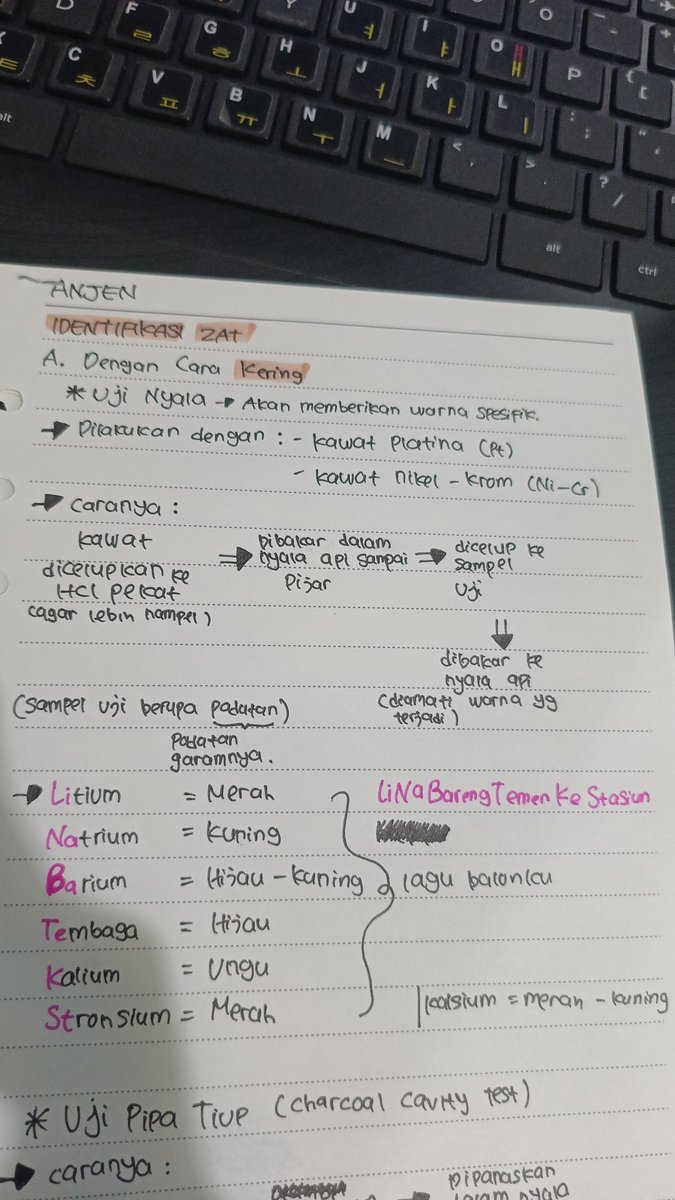 D
F ㄹ
G ㅎ
Y
U ㅕ
I ㅑ
O ㅐ ㅒ
O
-
C ㅊ
V ㅍ
H ㅗ
J ㅓ
K ㅏ
L ㅣ
P
{ [
alt
B ㅠ
N ㅜ
M ㅡ
<
,
>
.
: ;
? /
alt
ctrl
ANJEN
IDENTIFIKASI ZAT
A. Dengan Cara Kering
* Uji Nyala → Akan memberikan warna spesifik.
→ Dilakukan dengan : - kawat platina (Pt)
- kawat nikel - krom (Ni-Cr)
→ caranya :
kawat
dicelupkan ke
HCl pekat
(agar lebih nampel)
⇒
Dibakar dalam
nyala api sampai
Pijar
⇒
dicelup ke
sampel
Uji
⇓
dibakar ke
nyala api
(diamati warna yg
terjadi)
(Sampel uji berupa padatan)
Padatan
garamnya.
→ Litium = Merah
Natrium = kuning
Barium = Hijau - kuning
Tembaga = Hijau
Kalium = Ungu
Stronsium = Merah
LiNaBarengTemen Ke Stasiun
lagu balonku
kalsium = merah - kuning
* Uji Pipa Tiup (charcoal cavity test)
→ caranya :
→
Dipanaskan
dalam nyala